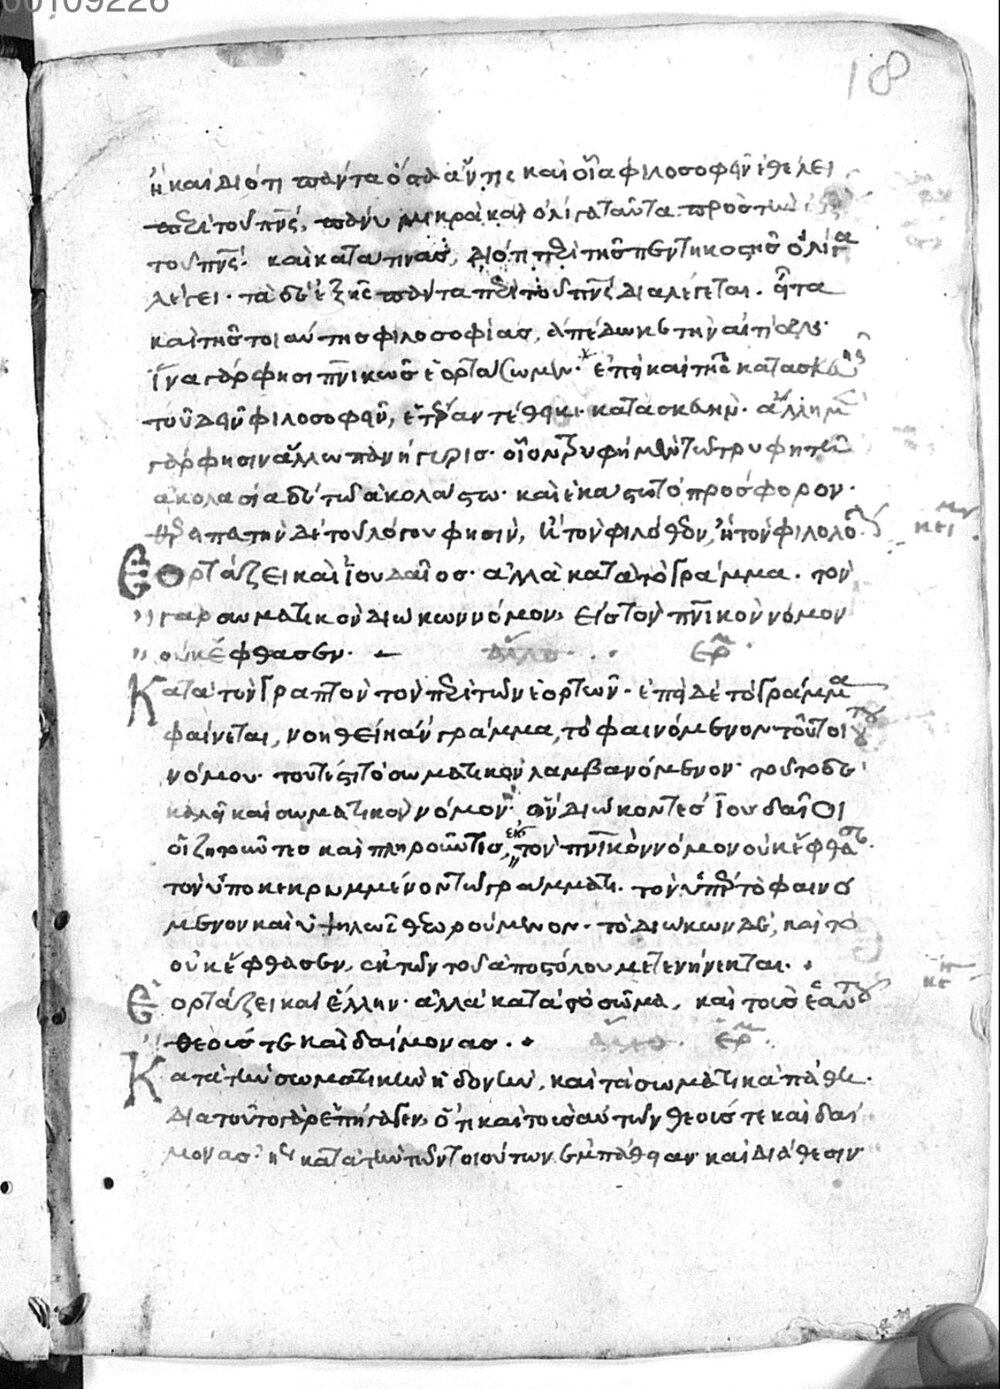 00109226
18
ἢ καὶ διότι πάντα ὅσα ἄν τις καὶ οἷα φιλοσοφεῖν ἐθέλει
περὶ τοῦ πνς, πάνυ μικρὰ καὶ ὀλίγα ταῦτα πρὸς τὴν
τοῦ πνς. καὶ κατά τινας, διότι περὶ τῆς πεντηκοστῆς ὀλίγα
λέγει. τὰ δὲ ἑξῆς πάντα περὶ τοῦ πνς διαλέγεται. εἶτα
καὶ τῆς τοιαύτης φιλοσοφίας, ἀπέδωκε τὴν αἰτίαν.
ἵνα γάρ φησι πνικῶς ἑορτάσωμεν. ἐπεὶ καὶ τῆς κατασκευῆς
τοῦ δεῖν φιλοσοφεῖν, ἑτέραν τέθηκε κατασκευήν. ἄλλη μὲν
γάρ φησιν ἄλλω πανήγυρις. οἷον τρυφὴ μὲν τῶ τρυφητῆ
ἀκολασία δὲ τῶ ἀκολάστω. καὶ ἑκάστω τὸ πρόσφορον.
θεραπευτὴν δὲ τοῦ λόγου φησὶν, ἢ τὸν φιλόθεον, ἢ τὸν φιλόλογον
Ἑορτάζει καὶ ἰουδαῖος. ἀλλὰ κατὰ τὸ γράμμα. τὸν
γὰρ σωματικὸν διώκων νόμον, εἰς τὸν πνικὸν νόμον
οὐκ ἔφθασεν. ἄλλο ἑρμ
Κατὰ τὸν γραπτὸν τὸν περὶ τῶν ἑορτῶν. ἐπεὶ δὲ τὸ γράμμα
φαίνεται, νοηθείη ἂν γράμμα, τὸ φαινόμενον τουτοῒ τοῦ
νόμου. τουτέστι τὸ σωματικὸν λαμβανόμενον. τοῦτο δὲ
καλεῖ καὶ σωματικὸν νόμον. ὃν διώκοντες ἰουδαῖοι
οἱ ζητοῦντες καὶ πληροῦντες, εἰς τὸν πνικὸν νόμον οὐκ ἔφθασαν.
τὸν ὑποκεκρυμμένον τῶ γράμματι. τὸν ὑπὲρ τὸ φαινό
μενον καὶ ὑψηλῶς θεωρούμενον. τὸ διώκων δὲ, καὶ τὸ
οὐκ ἔφθασεν, ἐκ τῶν τοῦ ἀποστόλου μετενήνεκται.
Ἑορτάζει καὶ ἕλλην. ἀλλὰ κατὰ τὸ σῶμα, καὶ τοὺς ἑαυτοῦ
θεούς τε καὶ δαίμονας. ἄλλο. ἑρμ
Κατὰ τὴν σωματικὴν ἡδονὴν, καὶ τὰ σωματικὰ πάθη.
διὰ τοῦτο γὰρ ἐπήγαγεν, ὅτι καὶ τοὺς αὐτῶν θεούς τε καὶ δαί
μονας. κατὰ τὴν τῶν τοιούτων ἐμπάθειαν καὶ διάθεσιν